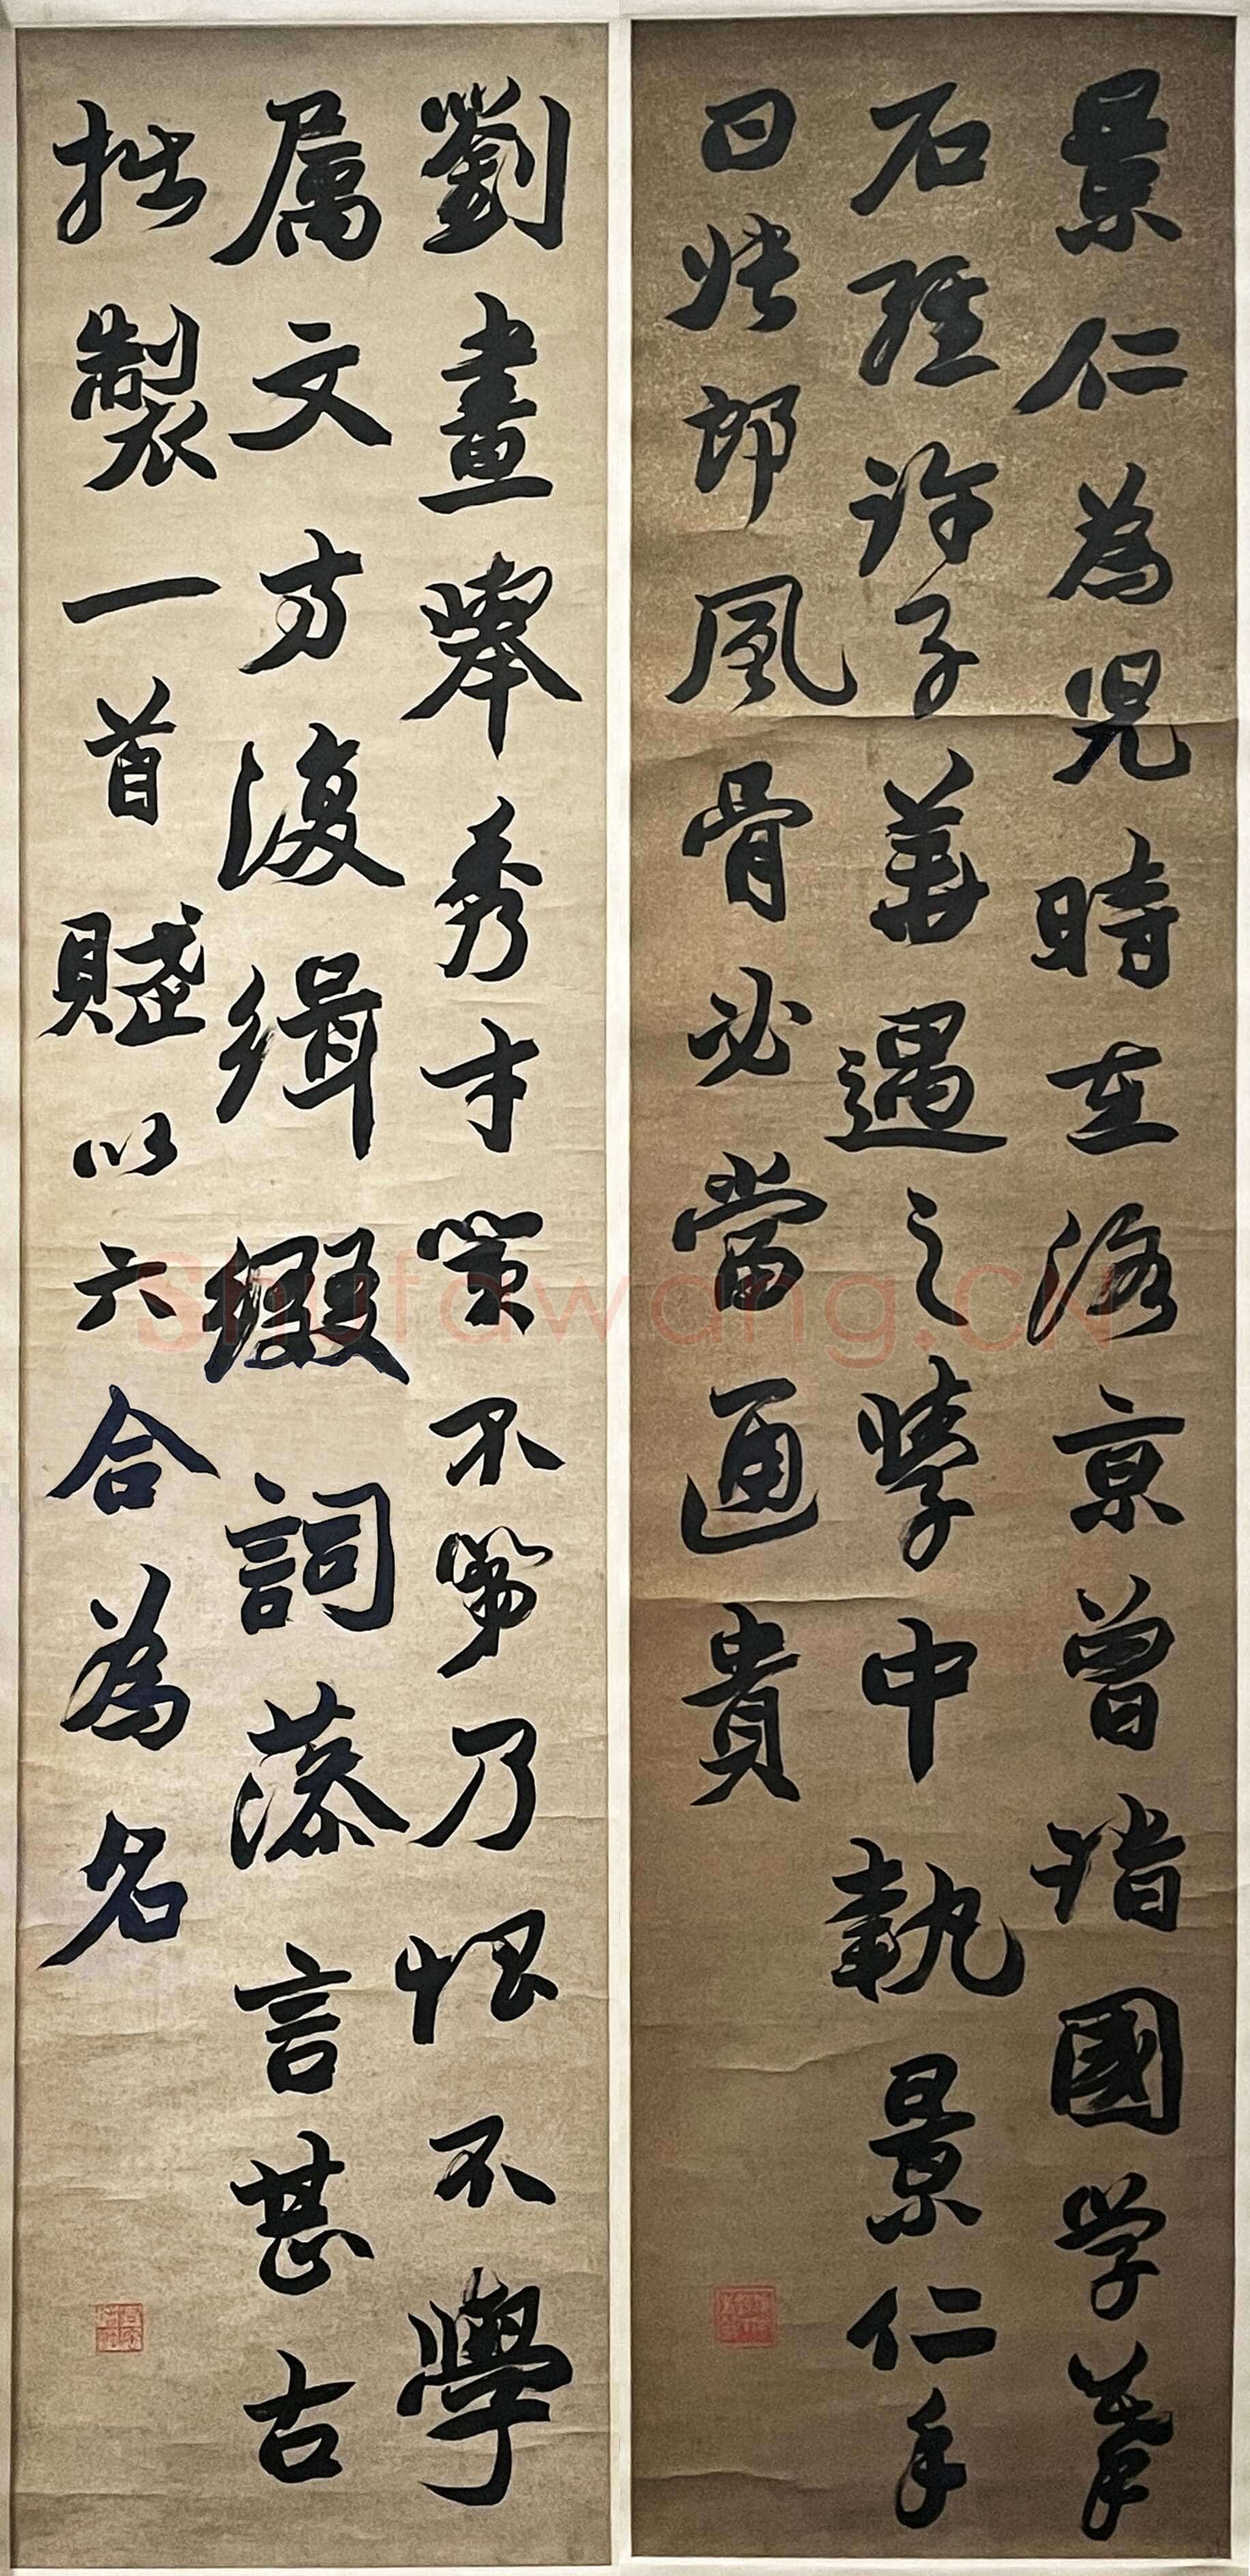 景仁為兒時在洛京曾詣國学摹
石經許子華遇之學中執景仁手
曰張郎風骨必當通貴
劉晝舉秀才策不第乃恨不學
属文方復緝綴詞藻言甚古
拙製一首賦以六合為名
Shufawang.CN